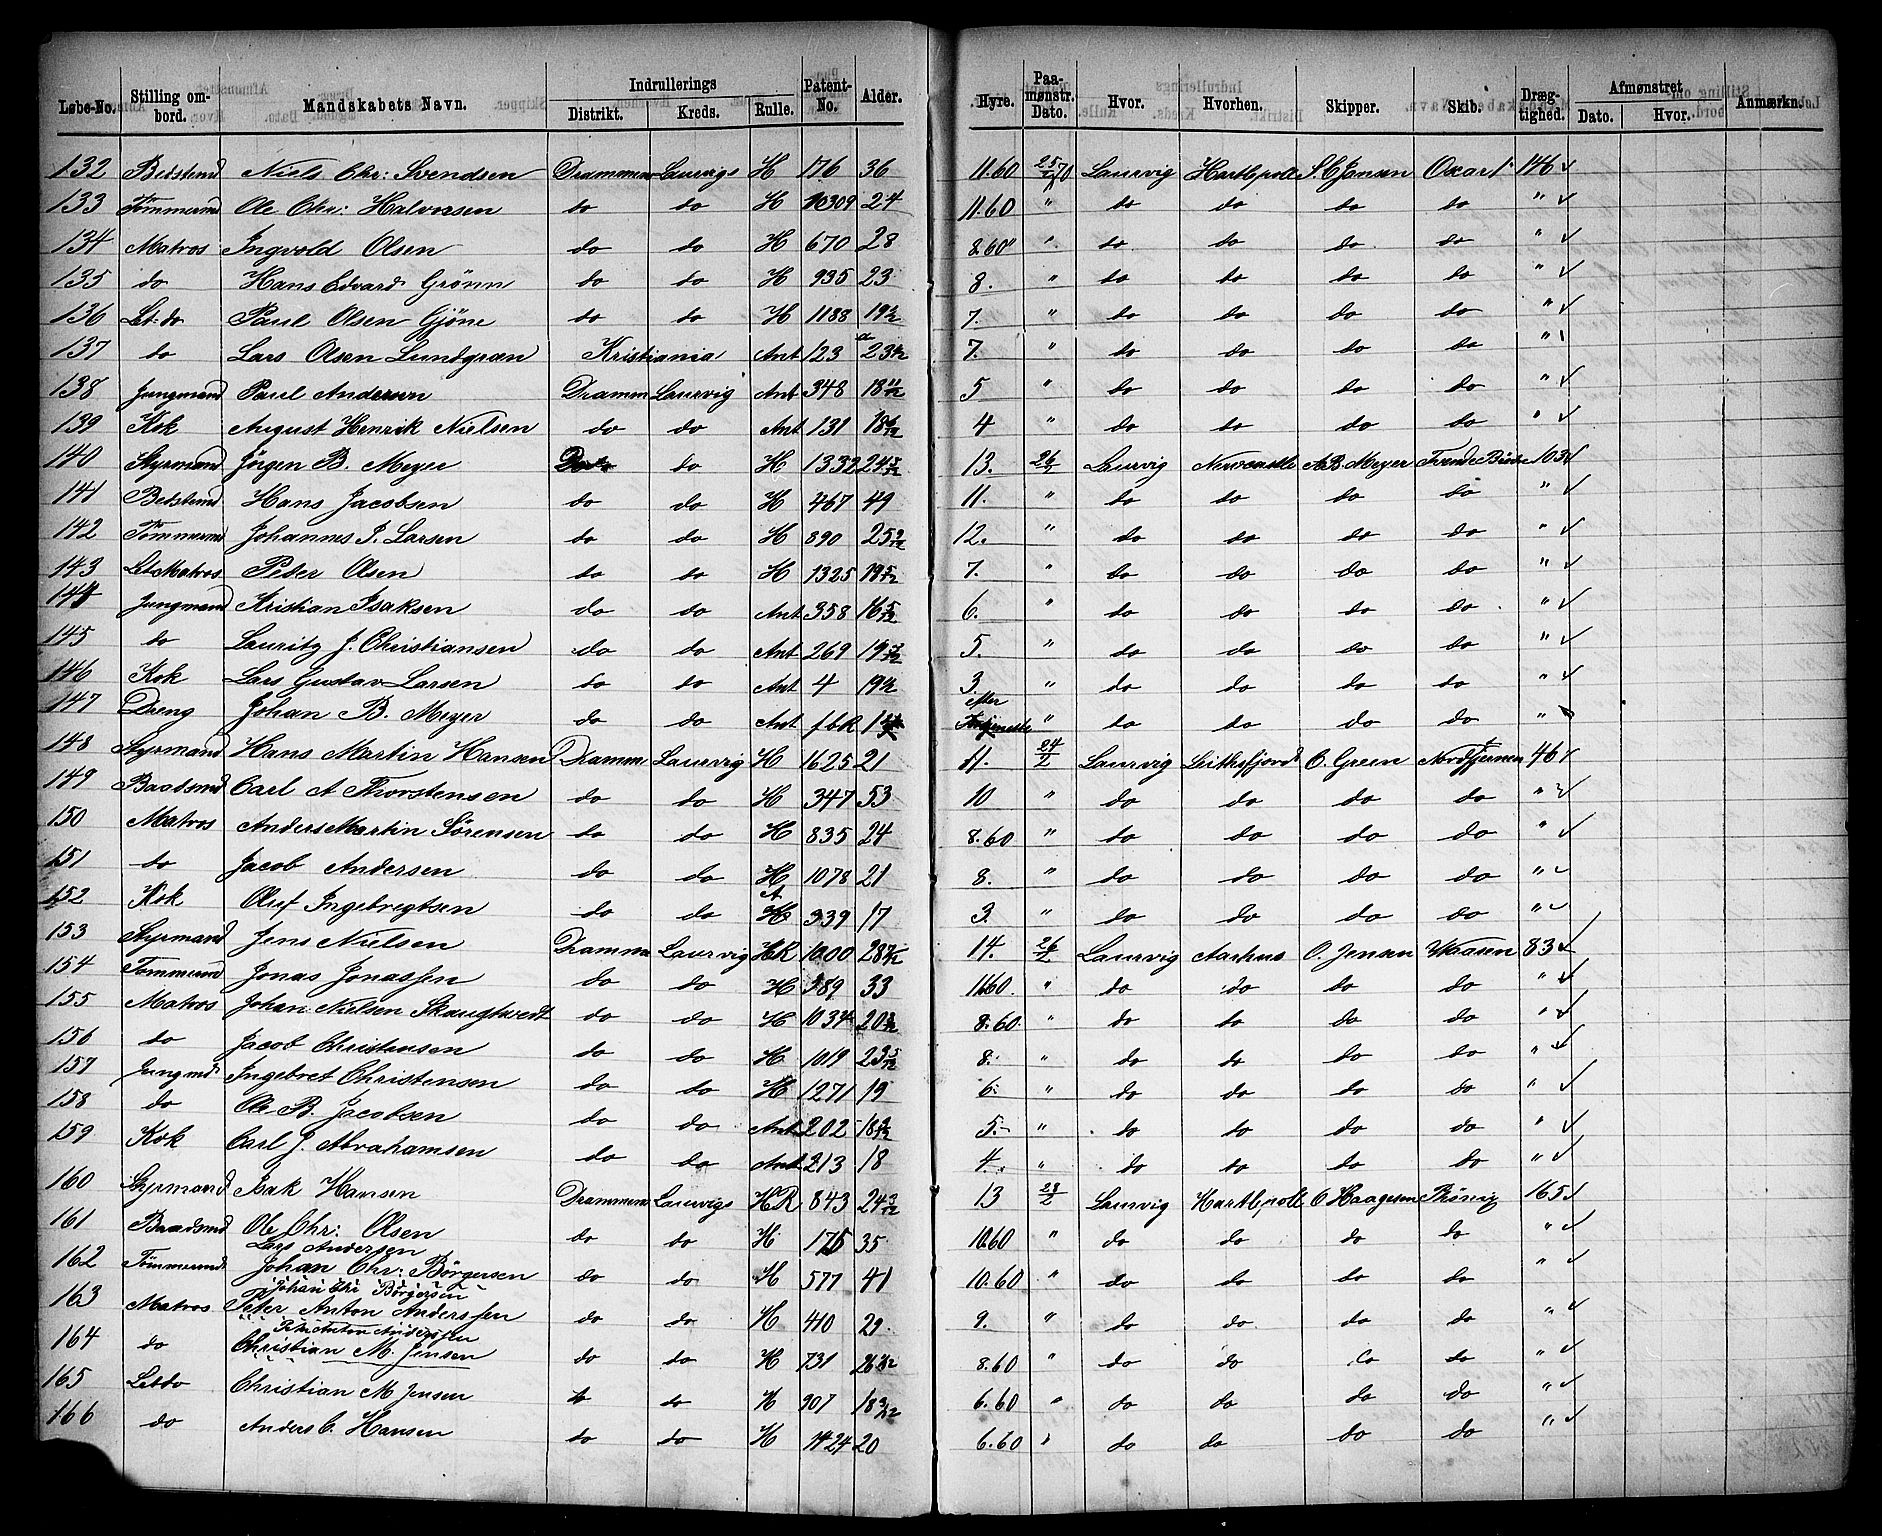 Løbe-No. Stilling ombord. Mandskabets Navn. Indrullerings Distrikt. Kreds. Rulle. Patent-No. Alder. Hyre. Paamønstr. Dato. Hvor. Hvorhen. Skipper. Skib. Drægtighed. Afmønstret Dato. Hvor. Anmærkn.
132 Bedstmd Niels Chr: Svendsen Drammen Laurvigs H 176 36 11.60 25/2 70 Laurvig Hartlepool S. C Jansen Oscar 146 ✓
133 Tømmermd Ole Chr: Halvorsen do do H 10309 24 11.60 " do do do do " ✓
134 Matros Ingvold Olsen do do H 670 28 8.60 " do do do do " ✓
135 do Hans Edvard Grönn do do H 935 23 8. " do do do do " ✓
136 Let. do Paul Olsen Gjöne do do H 1188 19 1/2 7. " do do do do " ✓
137 do Lars Olsen Lundgræn Kristiania Ant 123 23 7. " do do do do "
138 Jungmand Paul Andersen Dramm Laurvig Ant 348 18 11/12 5 " do do do do " ✓
139 Kok August Henrik Nielsen do do Ant 131 18 4 " do do do do " ✓
140 Styrmand Jörgen B. Meyer do H 1332 24 13. 26/2 Laurvig Newcastle A B Meyer 103 ✓
141 Bedstmd Hans Jacobsen do do H 467 49 11. " do do do do " ✓
142 Tömmermd Johannes J. Larsen do do H 890 25 12. " do do do do " ✓
143 Let Matros Peter Olsen do do H 1325 19 7. " do do do do " ✓
144 Jungmand Kristian Isaksen do do Ant 358 16 5/12 6. " do do do do " ✓
145 do Lauritz J. Christiansen do do Ant 269 19 5. " do do do do " ✓
146 Kok Lars Gustav Larsen do do Ant 4 19 1/2 3. " do do do do " ✓
147 Dreng Johan B. Meyer do do Ant fbk efter Fortjeneste " do do do do "
148 Styrmand Hans Martin Hansen Dramm Laurvig H 1625 21 11. 24/2 Laurvig Leithsfjord O. Green Nordstjernen 46 ✓
149 Baadsmd Carl A Thorstensen do do H 347 53 10 " do do do do " ✓
150 Matros Anders Martin Sörensen do do H 835 24 8.60 " do do do do " ✓
151 do Jacob Andersen do do H 1078 21 8. " do do do do " ✓
152 Kok Oluf Ingebregtsen do do A 339 17 3. " do do do do " ✓
153 Styrmand Jens Nielsen Dramm Laurvig HR 1000 28 14. 26/2 Laurvig Aarhus O. Jensen 83 ✓
154 Tømmermd Jonas Jonassen do do H 389 33 11.60. " do do do do " ✓
155 Matros Johan Nielsen Skaugtvedt do do H 1034 20 8.60. " do do do do " ✓
156 do Jacob Christensen do do H 1019 23 5/12 8. " do do do do " ✓
157 Jungmd Ingebret Christensen do do H 1271 19 6. " do do do do " ✓
158 do Ole B. Jacobsen do do Ant 202 18 5. " do do do do " ✓
159 Kok Carl J. Abrahamsen do do Ant 213 18 4. " do do do do " ✓
160 Styrmand Isak Hansen Drammen Laurvigs HR 843 24 3/12 13 28/2 Laurvig Hartlepool O Haagesen Phönix 165 ✓
161 Baadsmd Ole Chr: Olsen do do H 175 35 10.60 " do do do do " ✓
Lars Andersen
162 Tømmermd Johan Chr: Börgersen do do H 577 41 10.60 " do do do do " ✓
Johan Chr Börgersen
163 Matros Peter Anton Anderssen do do H 410 29. 9. " do do do do " ✓
Petr Anton Anderssen
164 do Christian M. Jensen do do H 731 26 8.60 " do do do do " ✓
165 Let do Christian M Jensen do do H 907 18 3/12 6.60 " do do do do " ✓
166 do Anders C. Hansen do do H 1424 20 6.60 " do do do do " ✓